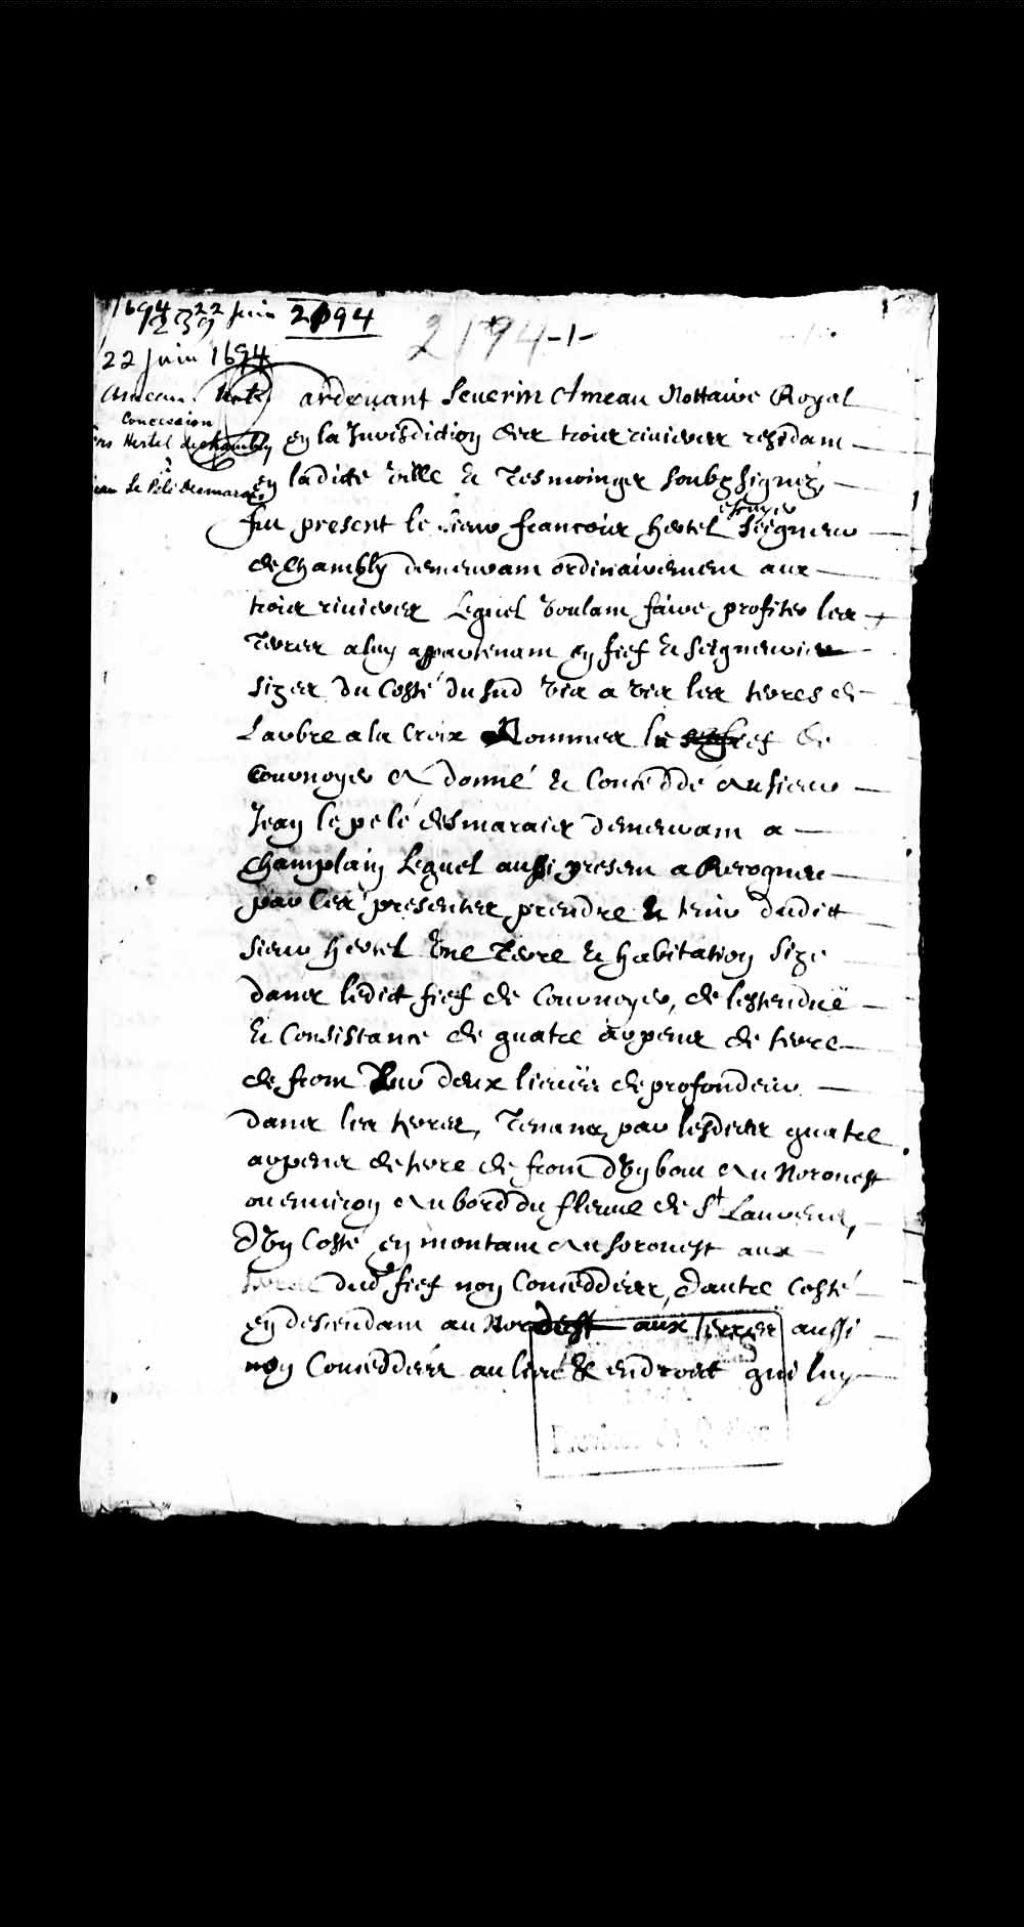 1694 22 Juin 2194
239
2194-1-
22 Juin 1694
Ameau Note
Concession
Hertel de Chambly
à
Jean Le Pelé Desmarais
Pardevant Severin Ameau Nottaire Royal
en la Jurisdiction des trois rivieres residant
en ladicte ville et Tesmoings soubzsignez,
fut present le sieur francois hertel escuyer Seigneur
de Chambly demeurant ordinairement aux
trois rivieres Lequel voulant faire profiter les
Terres a luy appartenant en fief et seigneurie
Sizes du Costé du sud vis a vis les terres de
Larbre a la Croix Nommes le fief de
Cournoyer A donné et Conceddé Au sieur
Jean le pelé desmarais demeurant a
Champlain Lequel aussi present a Recognu
par ces presentes prendre et tenir dudict
sieur hertel Une Terre et habitation Size
dans ledict fief de Cournoyer, de lestenduë
et Consistance de quatre arpens de terre
de front sur deux lieuës de profondeur
dans les terres, Tenant par lesdicts quatre
arpens de terre de front d'Un bout Au Norouest
ou environ Au bord du fleuve de St Laurens,
d'Un Costé en montant Au sorouest aux
terres dud fief non Conceddées, dautre costé
en descendant au Nordest aux terres aussi
non Conceddées au lieu & endroict qui luy